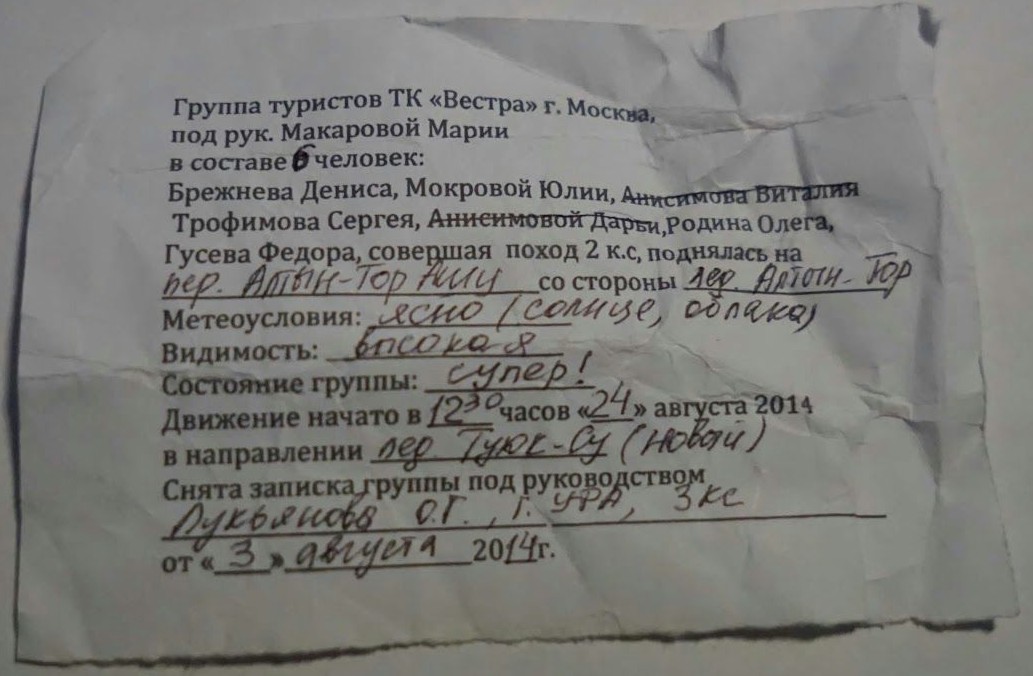 Группа туристов ТК «Вестра» г. Москва,
под рук. Макаровой Марии
в составе 6 человек:
Брежнева Дениса, Мокровой Юлии, Анисимова Виталия
Трофимова Сергея, Анисимовой Дарьи, Родина Олега,
Гусева Федора, совершая поход 2 к.с, поднялась на
пер. Алтын-Тор Ашу со стороны лед. Алтын-Тор
Метеоусловия: ясно (солнце, облака)
Видимость: высокая
Состояние группы: супер!
Движение начато в 12³⁰ часов «24» августа 2014
в направлении лед. Туюк-Су (новый)
Снята записка группы под руководством
Лукьянова О.Г., г. УФА, 3 кс
от «3» августа 2014г.